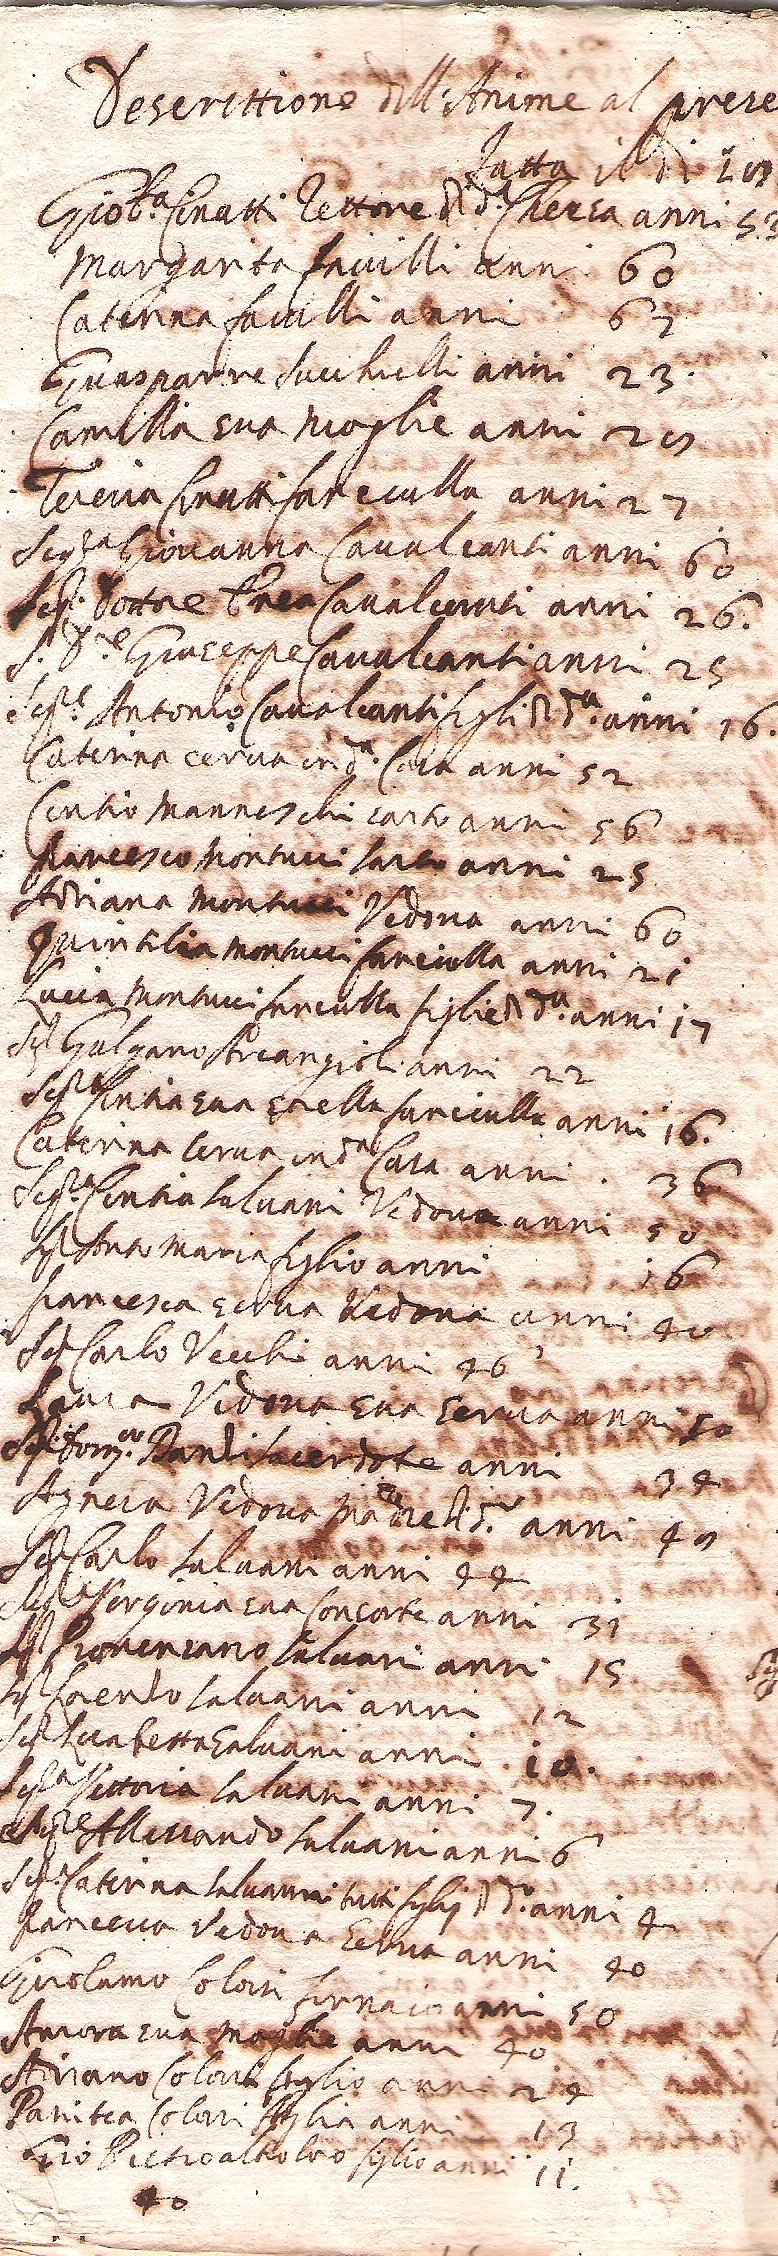 Descrittione dell'Anime al prese
fatta il di
Gio: Ba Cinatti Rettore di da Chiesa anni 53
Margarita facilli anni 60
Caterina facilli anni 67
Guasparre Succhielli anni 23.
Camilla sua moglie anni 29
Teresia Cinatti fanciulla anni 27
Sigra Giovanna Cavalcanti anni 60
Sigr Dottore Enea Cavalcanti anni 26.
S. Dre Giuseppe Cavalcanti anni 25
Sigre Antonio Cavalcanti figli di da. anni 16.
Caterina serva in da. Casa anni 52
Centio Manneschi sarto anni 56
francesco Montucci sarto anni 25
Adriana Montucci Vedova anni 60
Quintilia Montucci fanciulla anni 21
Lucia Montucci fanciulla figlie di da. anni 17
Sigr Galgano Arcangioli anni 22
Sigra Cintia sua sorella fanciulla anni 16.
Caterina serva in da Casa anni . 36
Sigra Cintia Salvani Vedova anni 50
Sigr Anto Maria figlio anni 16
francesca serva Vedova anni 40
Sigr Carlo Vecchi anni 46
Laura Vedova sua serva anni 50
Sigr Domco Bandi sacerdote anni 34
Agnesa Vedova Madre di do. anni 49
Sigr Carlo Salvani anni 44
Sigra Verginia sua Consorte anni 31
Sigr Provenzano Salvani anni 15
Sigr Salvani anni 12
Sigra Lisabetta Salvani anni 10.
Sigra Vettoria Salvani anni 7.
Sigre Allessandro Salvani anni 6
Sigra Caterina Salvani tutti figlij di do. anni 4
francesca Vedova serva anni 40
Girolamo Colori fornaio anni 50
Aurora sua moglie anni 40
Adriano Colori figlio anni 24
Panitea Colori figlia anni 13
Gio Pietro figlio anni 11.
40